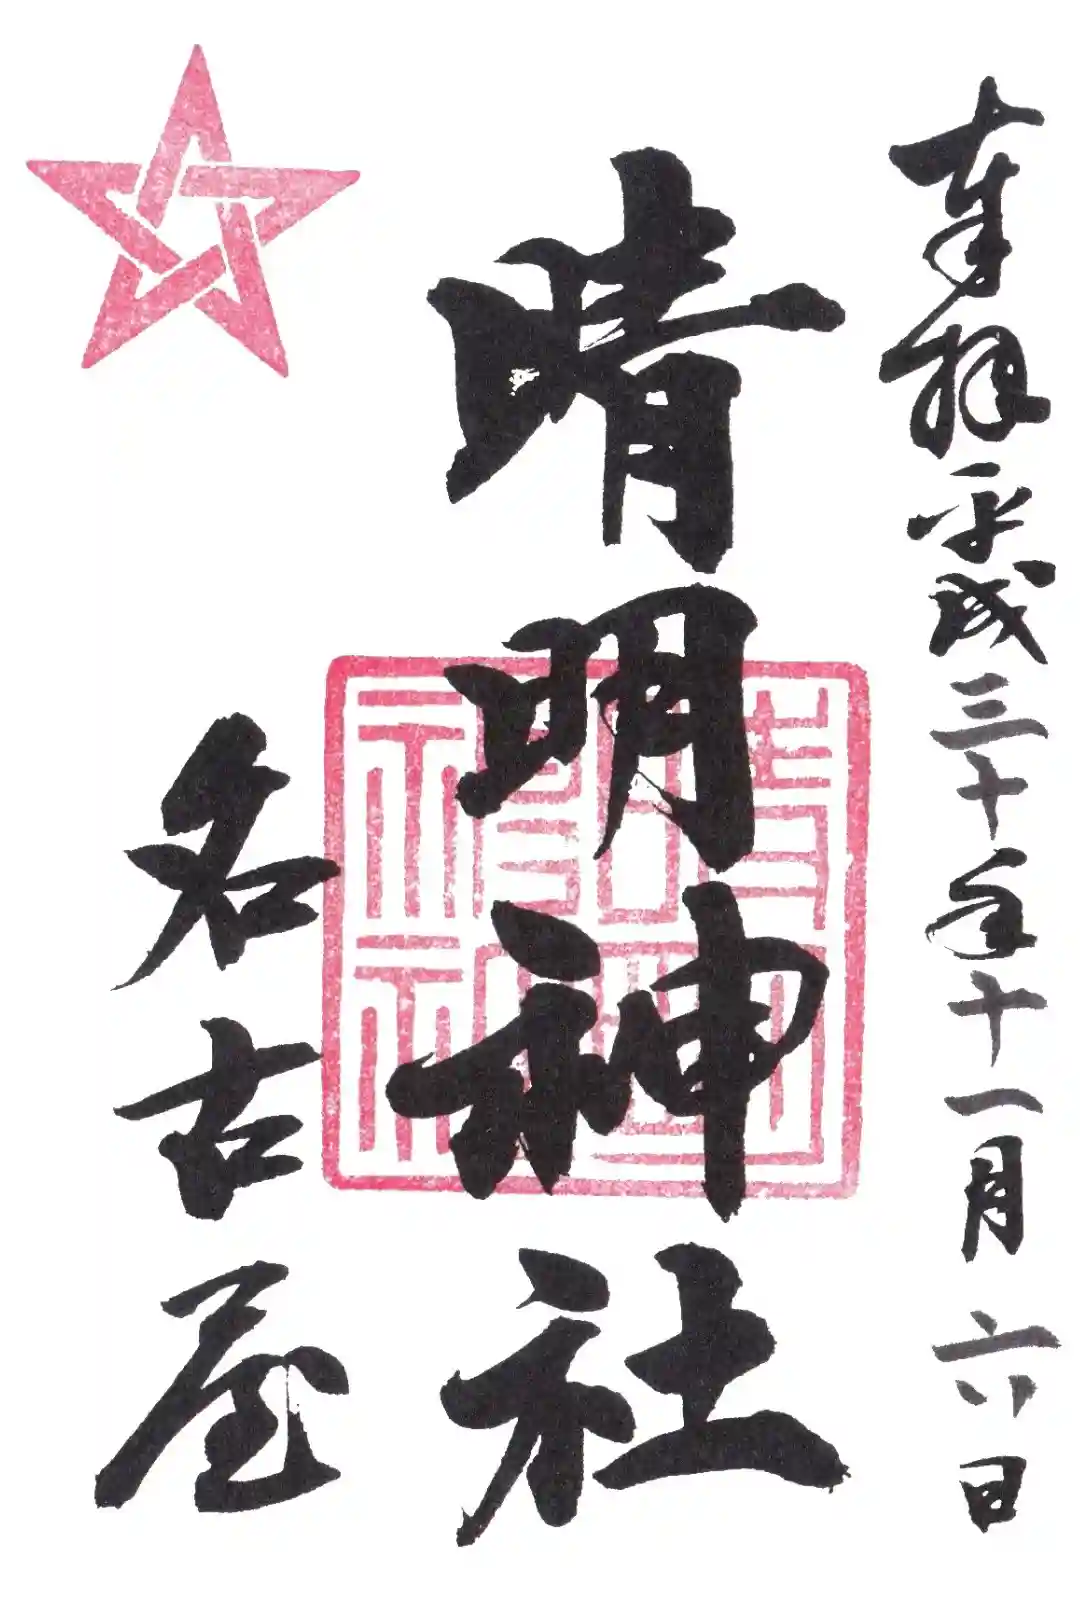 奉拝平成三十年十一月六日
晴明神社
名古屋